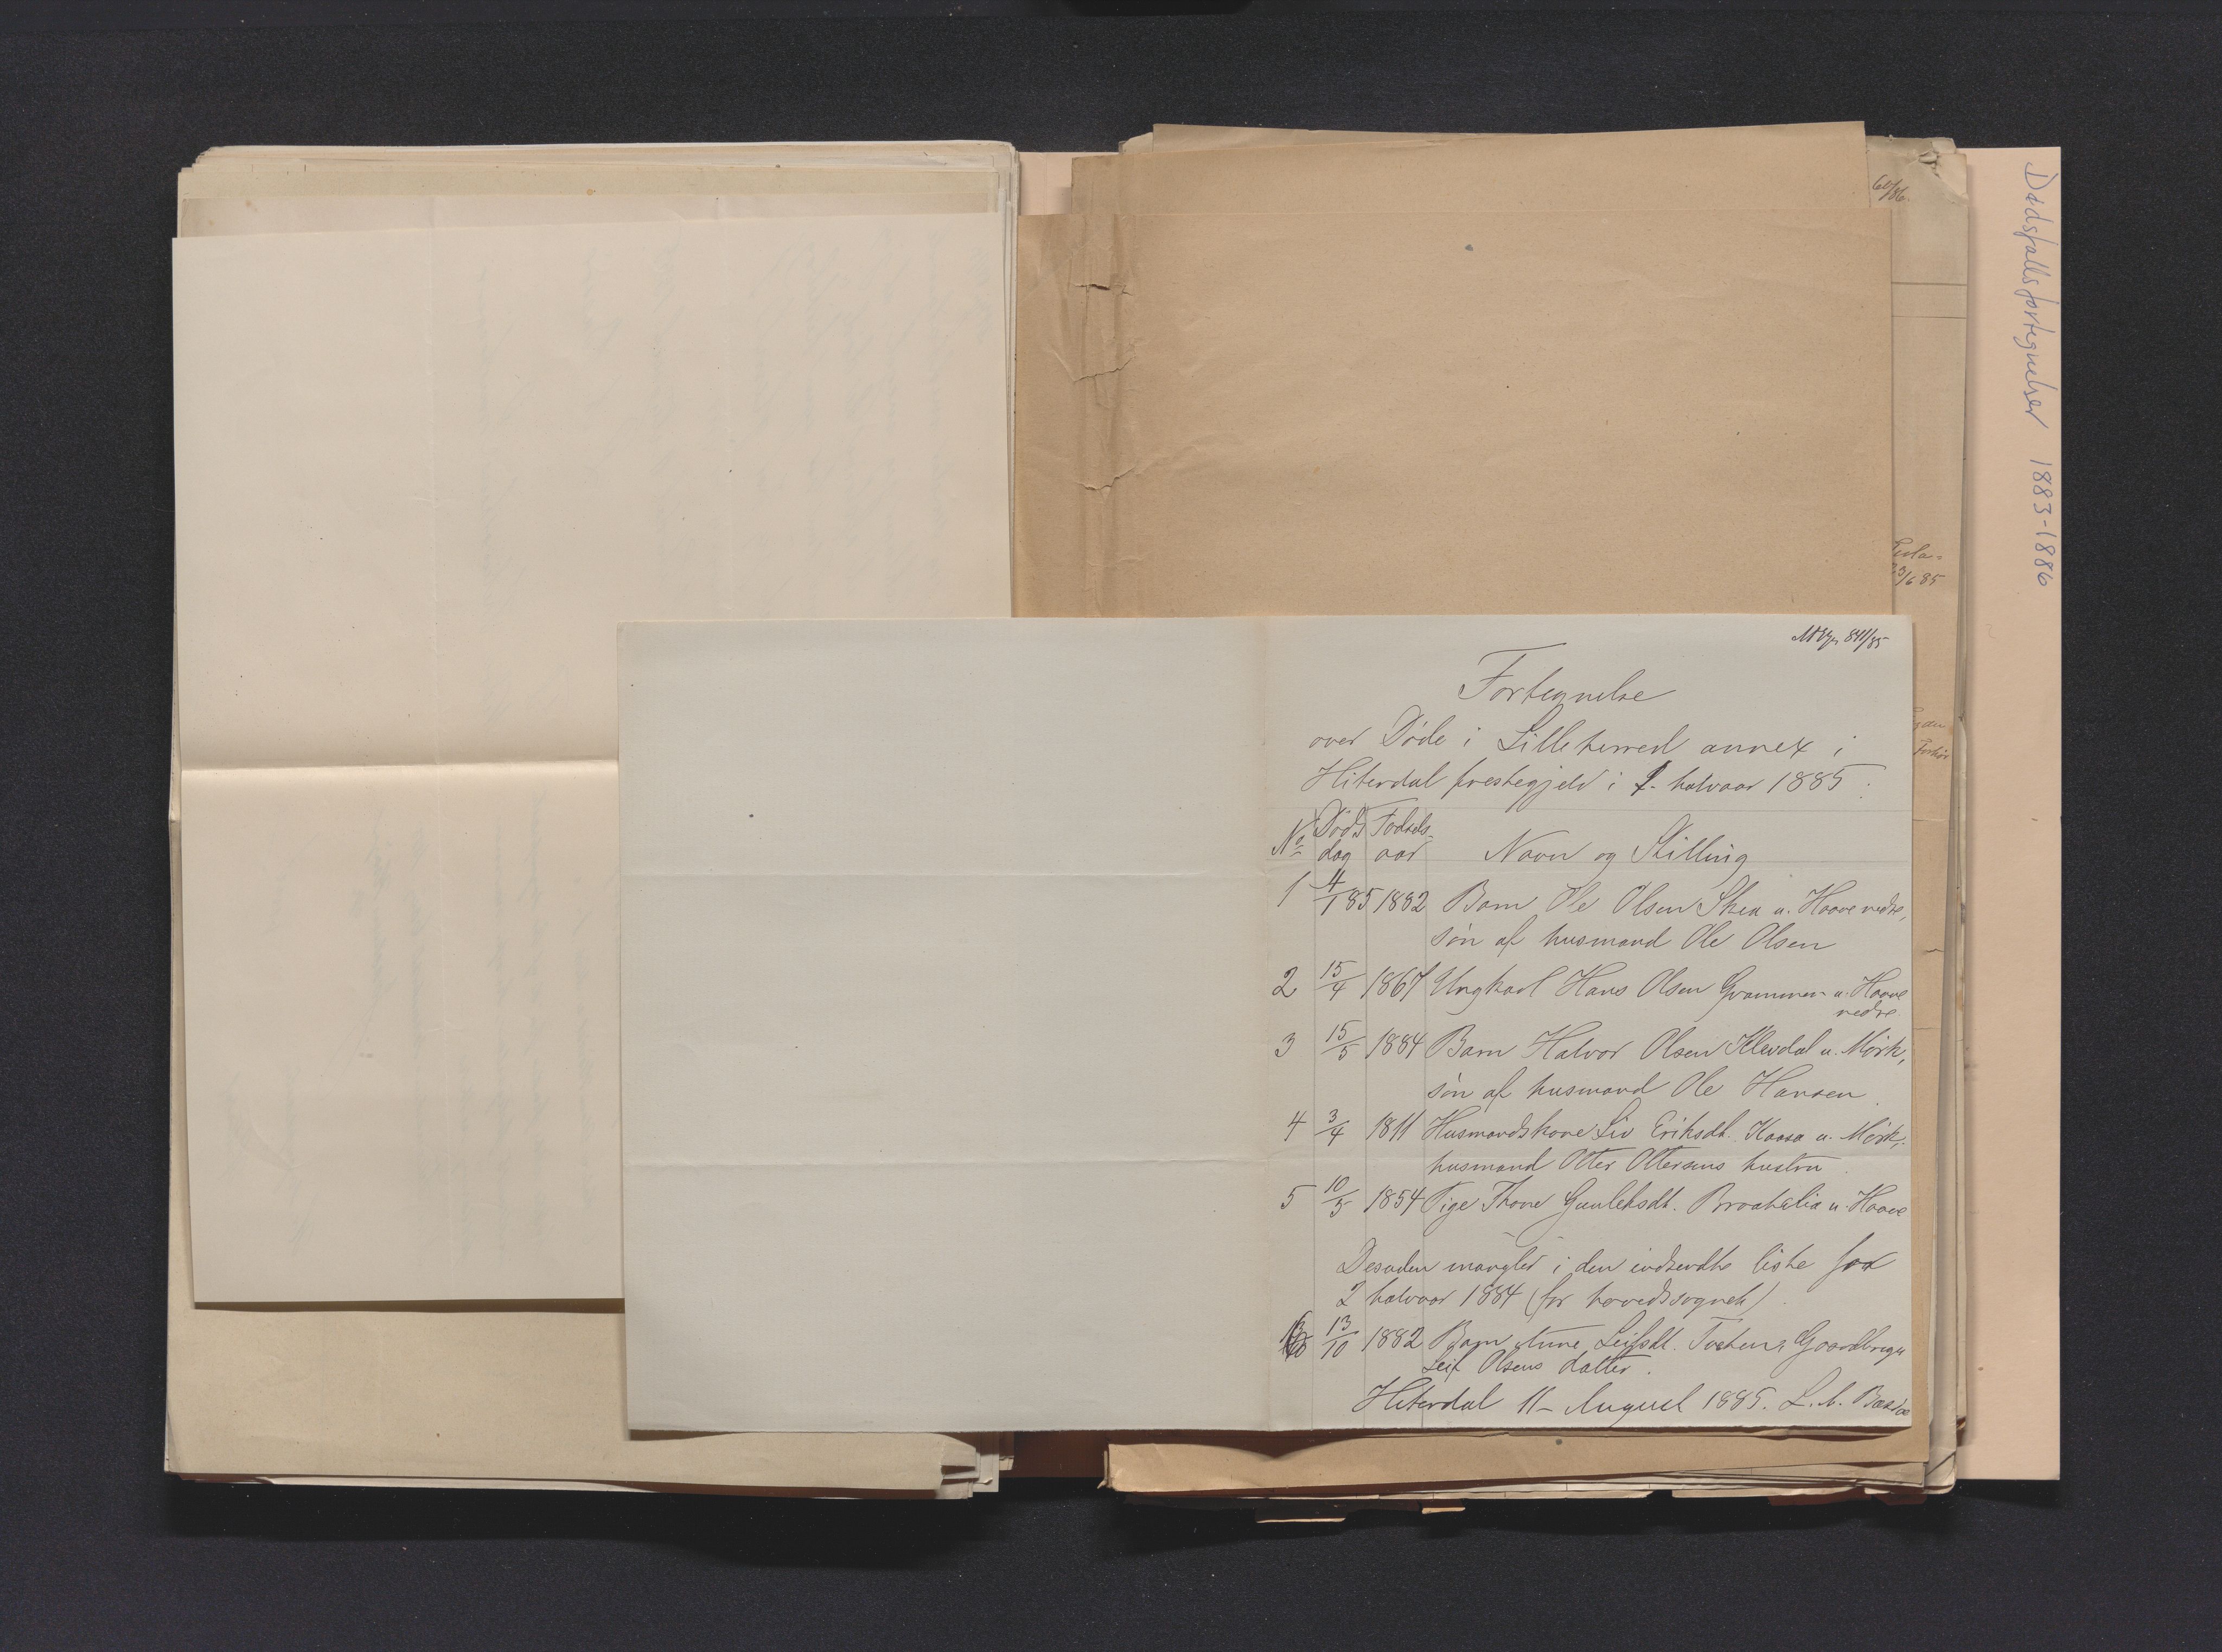 Dødsfallsfortegnelser 1883-1886
60/86.
3/6 85
841/85
Fortegnelse
over Døde i Lilleherred annex i
Hiterdal prestegjeld i 1- halvaar 1885.
No Døds Fødsels-
dag aar Navn og Stilling
1 4/1 85 1882 Barn Ole Olsen Skea u. Haave nedre,
søn af husmand Ole Olsen
2 15/4 1867 Ungkarl Hans Olsen Grammen u. Haave
nedre.
3 15/5 1884 Barn Halvor Olsen Klevdal u. Mörk,
søn af husmand Ole Hansen.
4 3/4 1811 Husmandskone Liv Eriksdt. Kaasa u. Mörk,
husmand Otter Ottersens hustru.
5 10/5 1854 Pige Thone Gunleksdt. u. Haave
Desuden mangler i den indsendte liste for
2 halvaar 1884 (for hovedsognet)
13/10 1882 Barn Anne Leifsdt. Gaardbruger
Leif Olsens datter.
Hiterdal 11- August 1885. L.